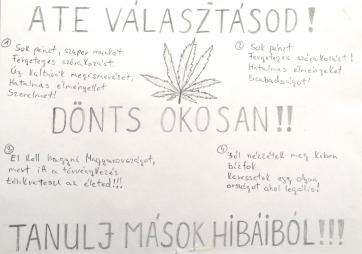 A TE VÁLASZTÁSOD!
① Sok pénzt, szuper munkát.
Fergeteges szórakozást.
Új kultúrák megismerését,
Hatalmas élményeket
Szerelmet!
② Sok pénzt
Fergeteges szórakozást!
Hatalmas élményeket
Szabadságot!
DÖNTS OKOSAN!!
③ El kell hagyni Magyarországot,
mert itt a törvénykezés
tönkreteszi az életed!!!
④ Jól nézzétek meg kiben
bíztok.
Keressetek egy olyan
országot ahol legális!
TANULJ MÁSOK HIBÁIBÓL!!!